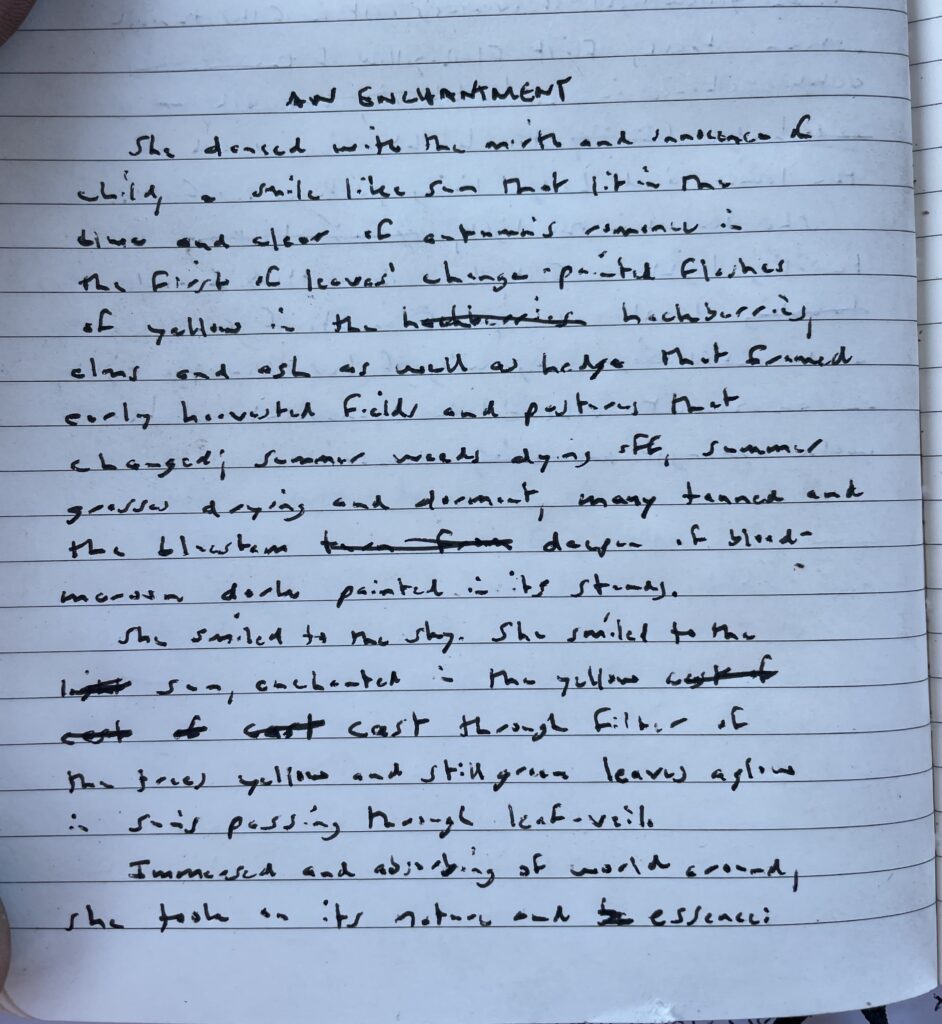 AN ENCHANTMENT
She danced with the mirth and innocence of
child, a smile like sun that lit in the
time and clear of autumn's romance in
the first of leaves' change-painted flashes
of yellow in the hackberries hackberries,
elms and ash as well as hedge that framed
early harvested fields and pastures that
changed; summer weeds dying off, summer
grasses drying and dormant, many tanned and
the bluestem turn from deepen of blood-
maroon dark painted in its steams.
She smiled to the sky. She smiled to the
light sun, enchanted in the yellow cast of
cast of cast cast through filter of
the trees yellow and still green leaves aglow
in sun's passing through leaf-veil.
Immersed and absorbing of world around,
she took on its nature and essence: